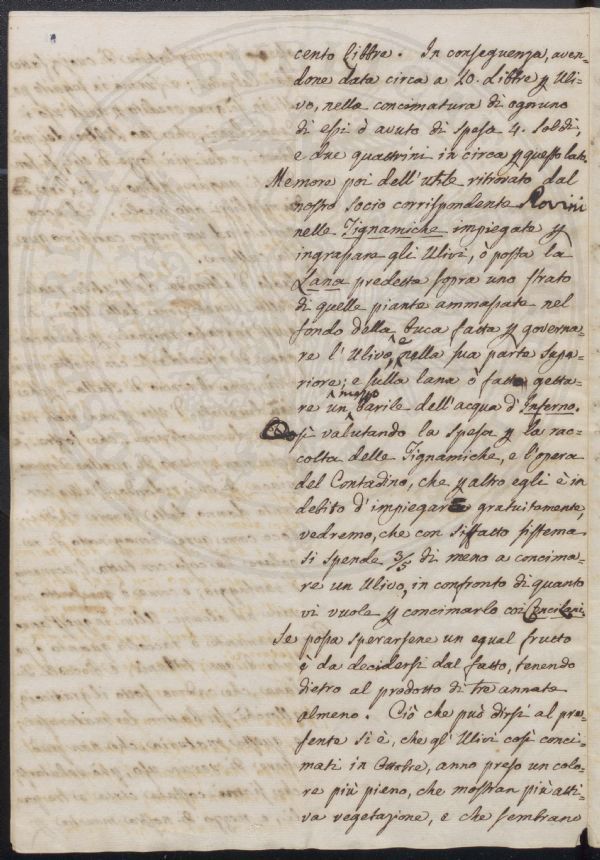 cento Libbre. In conseguenza, aven-
done data circa a 20. Libbre p Uli-
vo, nella concimatura di ognuno
di essi ò avuto di spesa 4. soldi,
e due quattrini in circa p questo lato.
Memore poi dell'utile ritrovato dal
nostro socio corrispondente Rovini
nelle Tignamiche impiegate p
ingrassare gli Ulivi, ò posta la
Lana predetta sopra uno strato
di quelle piante ammassate nel
fondo della buca fatta p governa-
re l'Ulivo, e nella sua parte supe-
riore; e sulla lana ò fatto getta-
re un mezzo barile dell'acqua d'Inferno.
Così valutando la spesa p la rac-
colta delle Tignamiche, e l'opera
del Contadino, che p altro egli è in
debito d'impiegare gratuitamente,
vedremo, che con siffatto sistema
si spende 3/5 di meno a concima-
re un Ulivo, in confronto di quanto
vi vuole p concimarlo coi Cenci lani.
Se possa sperarsene un egual frutto
è da decidersi dal fatto, tenendo
dietro al prodotto di tre annate
almeno. Ciò che può dirsi al pre-
sente si è, che gl'Ulivi così conci-
mati in Ottobre, anno preso un colo-
re più pieno, che mostran più atti-
va vegetazione, e che sembrano